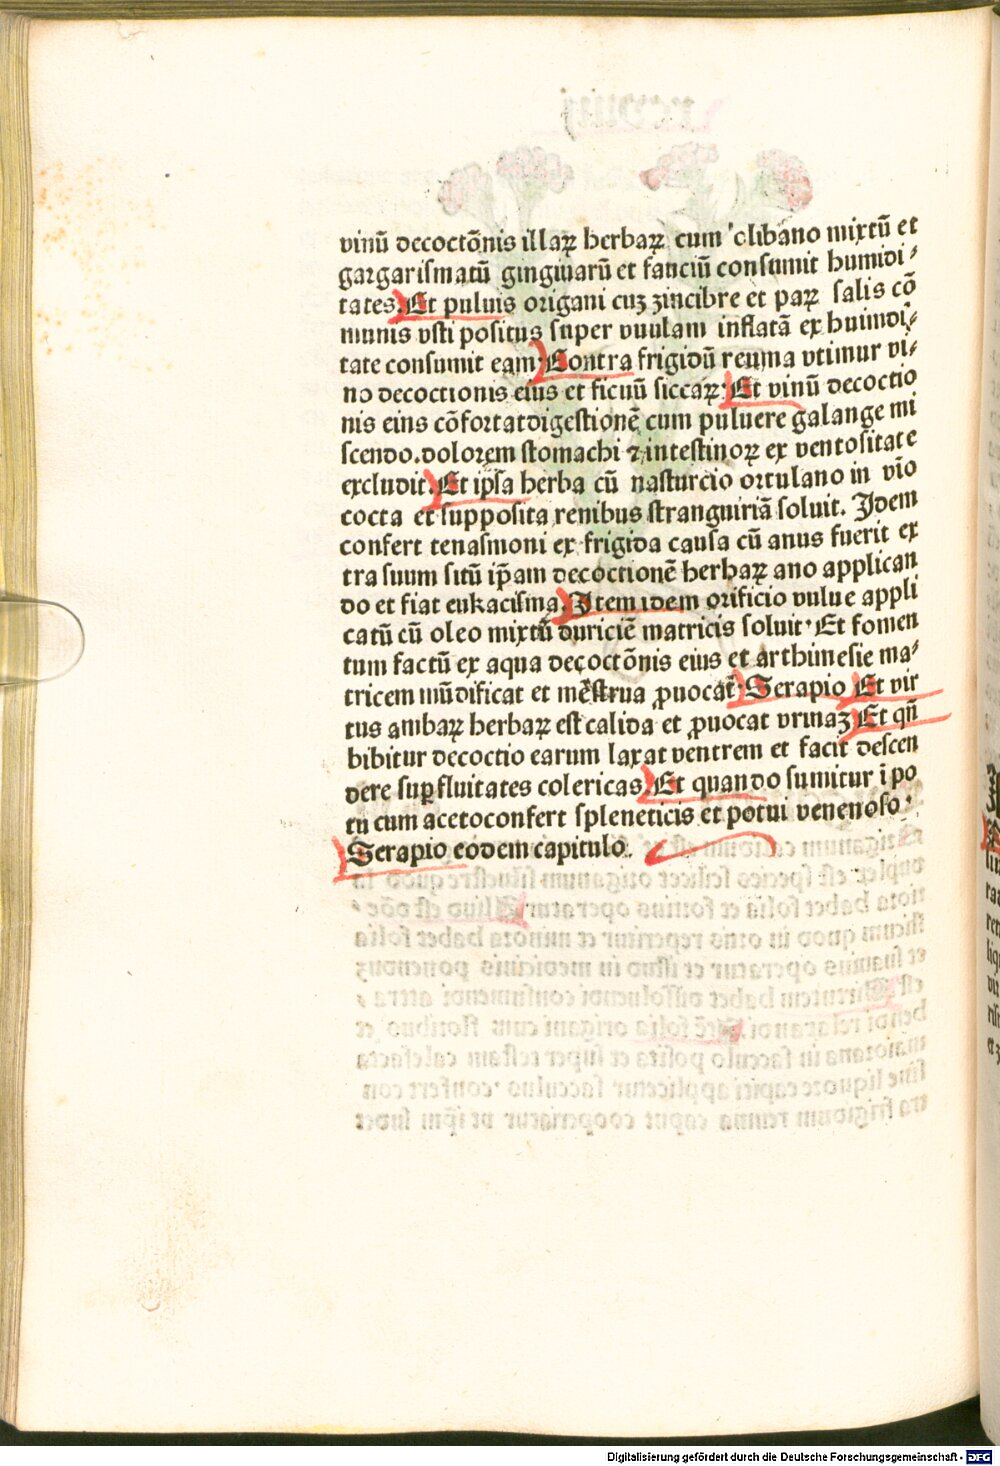 vinū decoctōnis illaꝝ herbaꝝ cum olibano mixtū et
gargarismatū gingiuarū et fauciū consumit humidi⸗
tates. Et puluis origani cuꝫ zincibre et paꝝ salis cō
munis vsti positus super vuulam inflatā ex humidi⸗
tate consumit eam. Contra frigidū reuma vtimur vi⸗
no decoctionis eius et ficuū siccaꝝ. Et vinū decoctio
nis eius cōfortat digestionē cum puluere galange mi
scendo. dolorem stomachi ⁊ intestinoꝝ ex ventositate
excludit. Et ip̄sa herba cū nasturcio ortulano in vīo
cocta et supposita renibus stranguiriā soluit. Idem
confert tenasmoni ex frigida causa cū anus fuerit ex
tra suum sitū ip̄am decoctionē herbaꝝ ano applican
do et fiat eukacisma. Item idem orificio vulue appli
catū cū oleo mixtū duriciē matricis soluit. Et fomen
tum factū ex aqua decoctōnis eius et arthimesie ma⸗
tricem mūdificat et mēstrua ꝓuocat. Serapio Et vir
tus ambaꝝ herbaꝝ est calida et ꝓuocat vrinaꝫ Et qn̄
bibitur decoctio earum laxat ventrem et facit descen
dere suꝑfluitates colericas. Et quando sumitur ī po
tu cum aceto confert spleneticis et potui venenoso.
Serapio eodem capitulo.
Digitalisierung gefördert durch die Deutsche Forschungsgemeinschaft - DFG